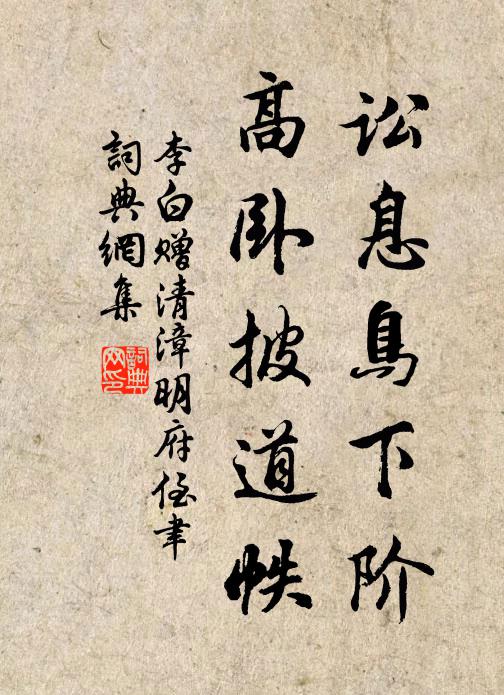 讼息鳥下阶
高卧披道帙
李白赠清漳明府侄聿
詞典網集
詞典网印